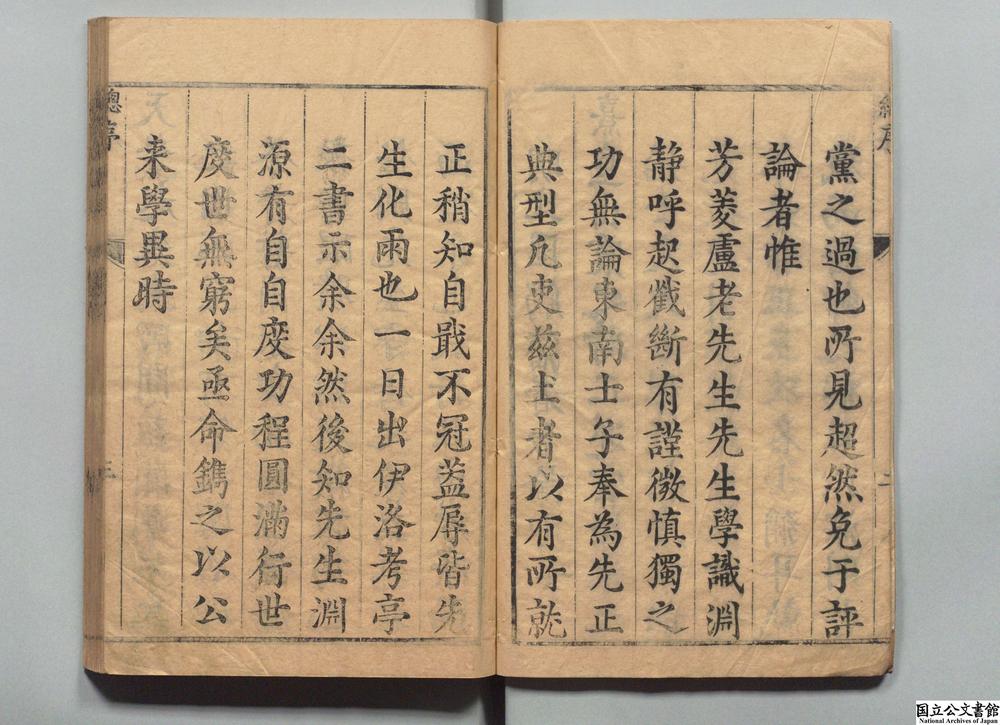 黨之過也所見超然免于評
論者惟
芳菱盧老先生先生學識淵
靜呼起截斷有謹微慎獨之
功無論東南士子奉為先正
典型凢吏茲土者以有所就
正稍知自戢不冠盖辱皆先
生化雨也一日出伊洛考亭
二書示余余然後知先生淵
源有自自度功程圓滿衍世
度世無窮矣亟命鐫之以公
来學異時
總序
三
国立公文書館
National Archives of Japan